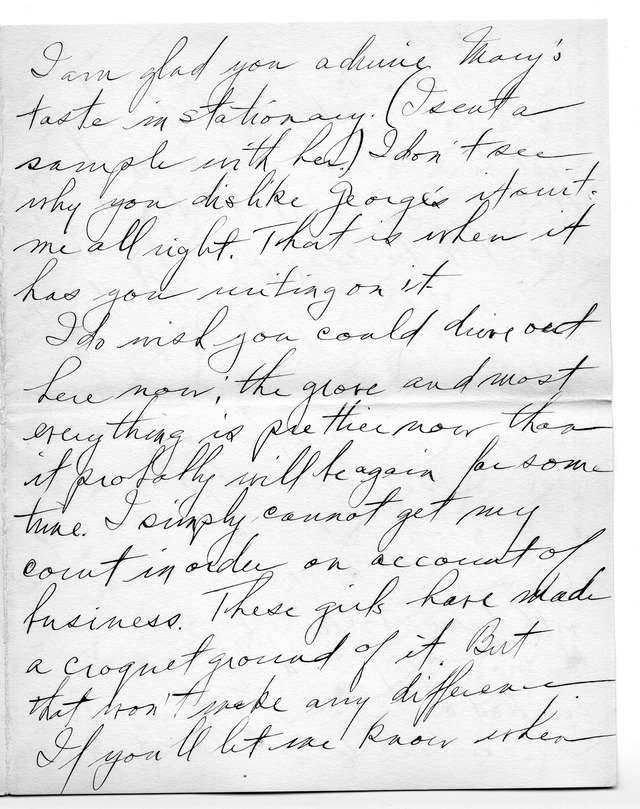 I am glad you admire Mary's
taste in stationary. (I sent a
sample with her.) I don't see
why you dislike George's it suits
me all right. That is when it
has you writing on it
I do wish you could drive out
here now; the grove and most
everything is prettier now than
it probably will be again for some
time. I simply cannot get my
court in order on account of
business. These girls have made
a croquet ground of it. But
that won't make any difference.
If you'll let me know when